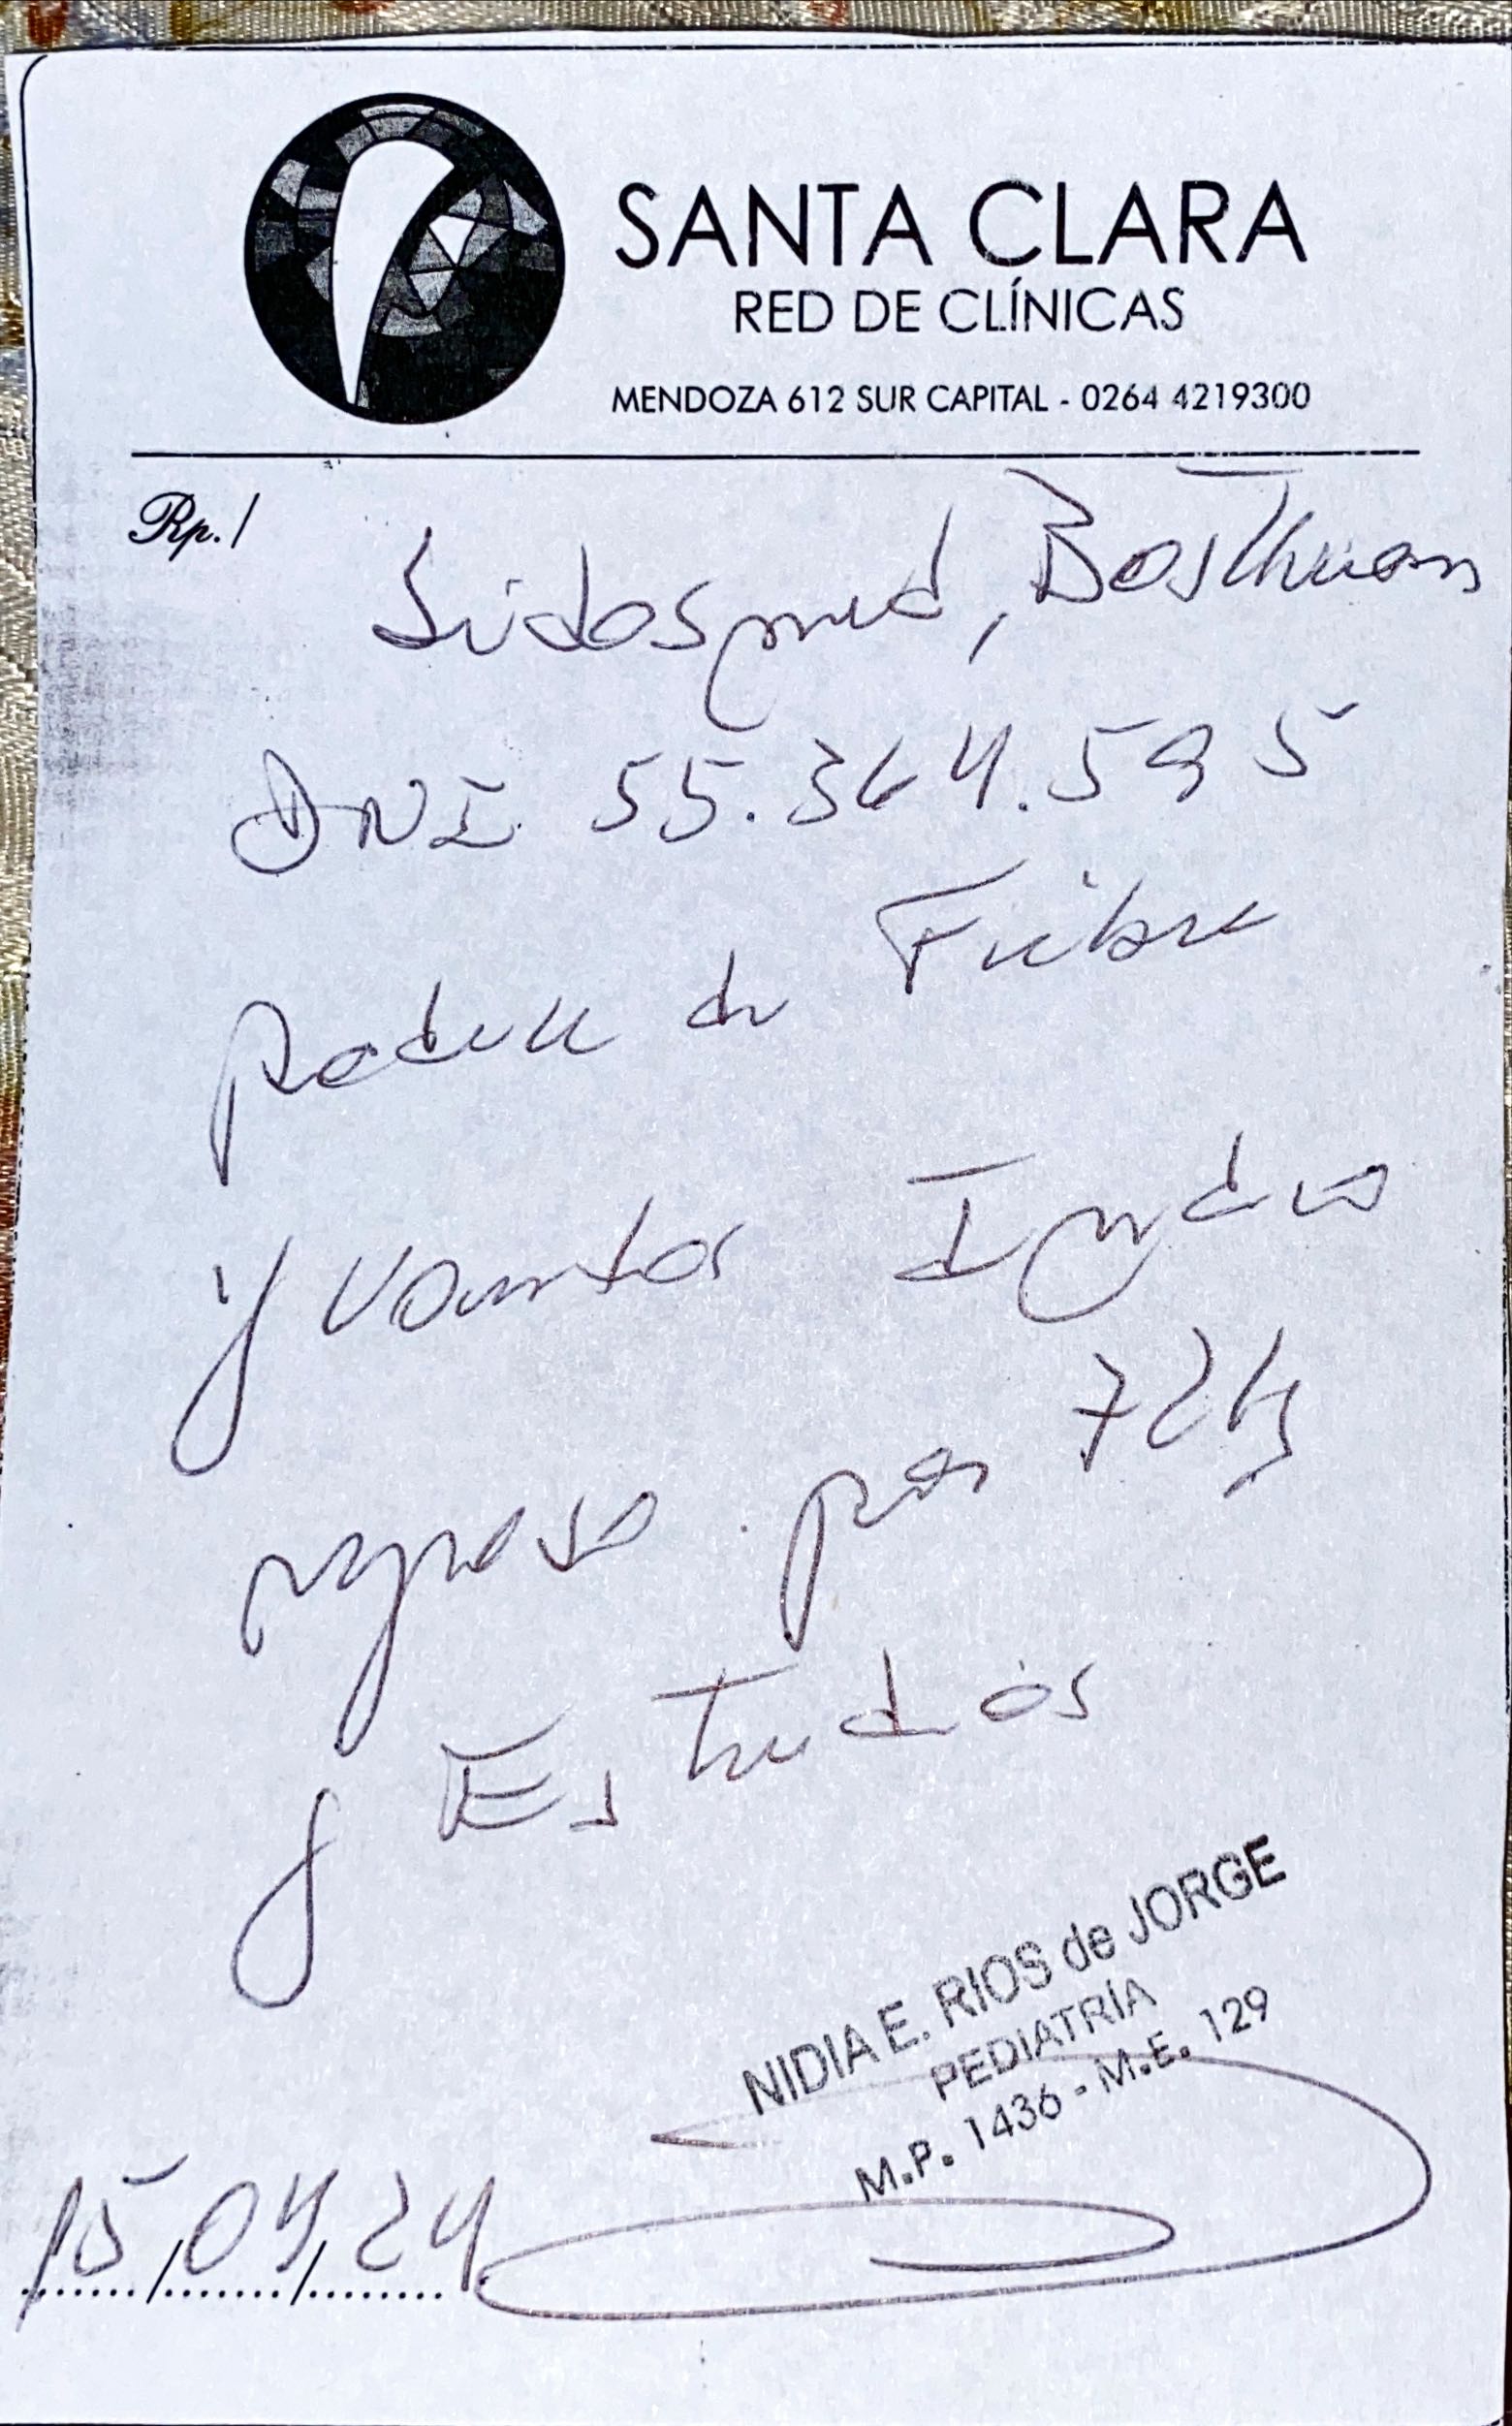 SANTA CLARA
RED DE CLÍNICAS
MENDOZA 612 SUR CAPITAL - 0264 4219300
Rp./
DNI 55.364.595
padece de Fiebre
y vomitos Indico
reposo por 72hs
y Estudios
NIDIA E. RIOS de JORGE
PEDIATRÍA
M.P. 1436 - M.E. 129
15/04/24